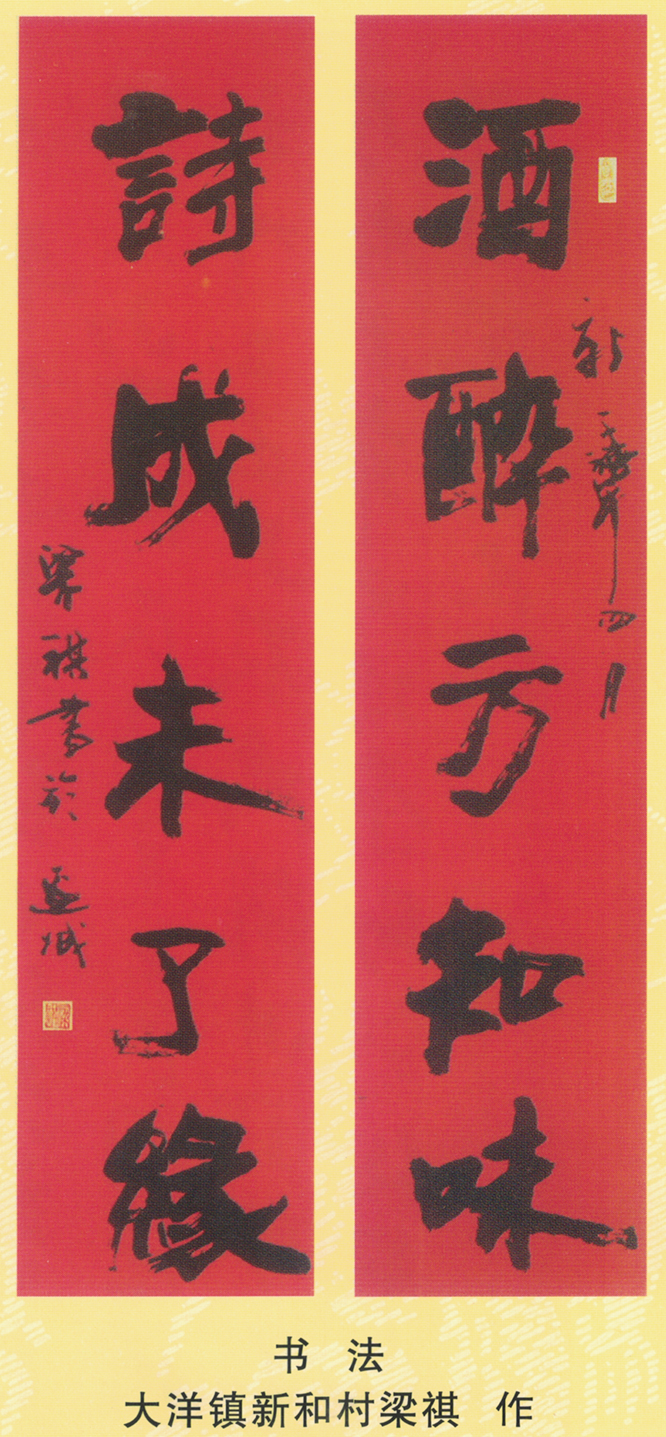 酒醉方知味
千禧年四月
詩成未了緣
梁祺書於
书 法
大洋镇新和村梁祺 作